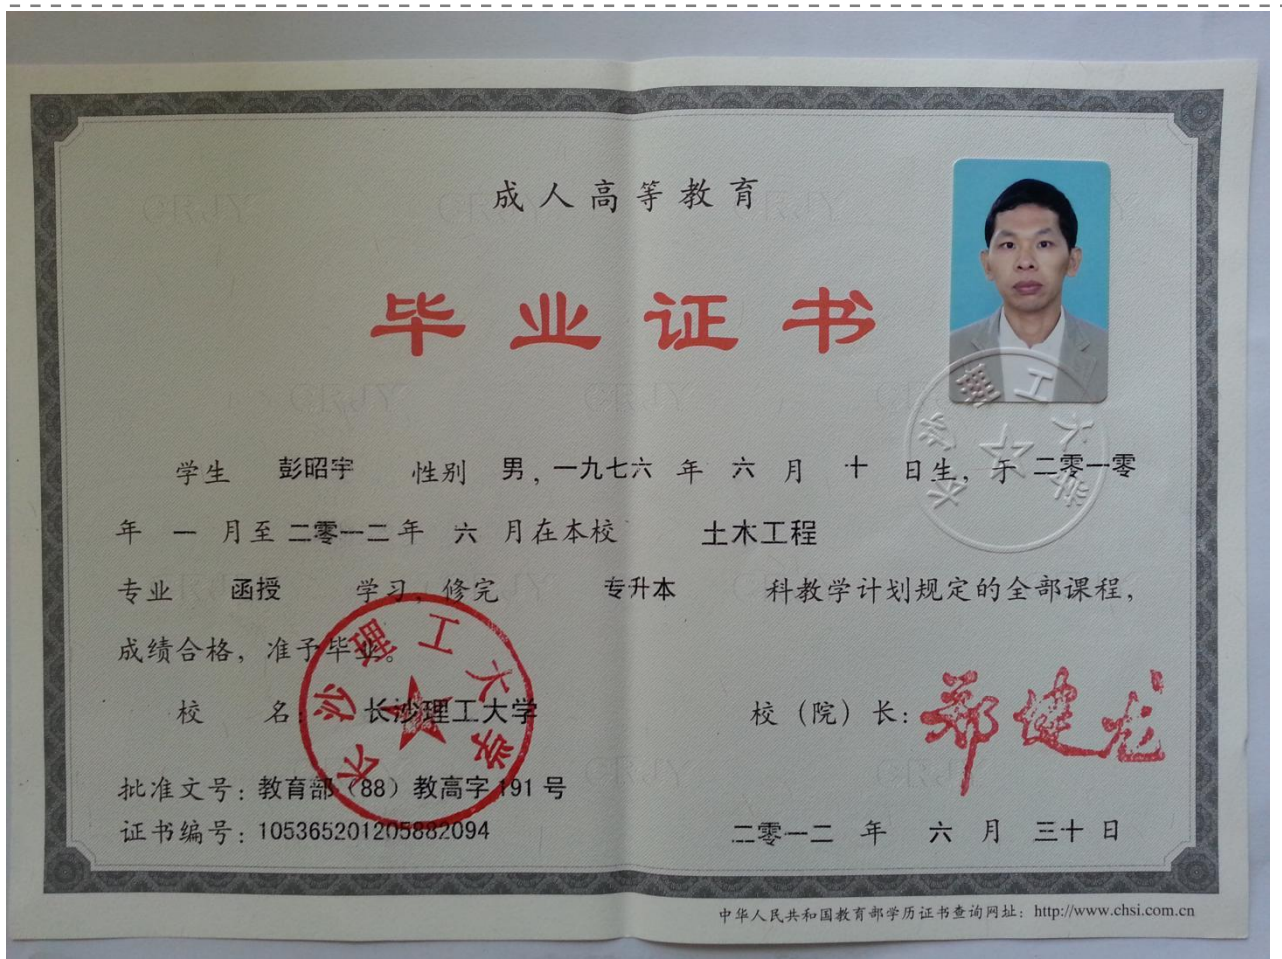 成人高等教育
毕业证书
学生 彭昭宇 性别 男，一九七六 年 六 月 十 日生，于 二零一零
年 一 月至 二零一二 年 六 月在本校 土木工程
专业 函授 学习，修完 专升本 科教学计划规定的全部课程，
成绩合格，准予毕业。
校 名：长沙理工大学 校（院）长：郑健龙
长沙理工大学
长沙理工大学
批准文号：教育部（88）教高字 191 号
证书编号：105365201205882094 二零一二 年 六 月 三十 日
中华人民共和国教育部学历证书查询网址：http://www.chsi.com.cn